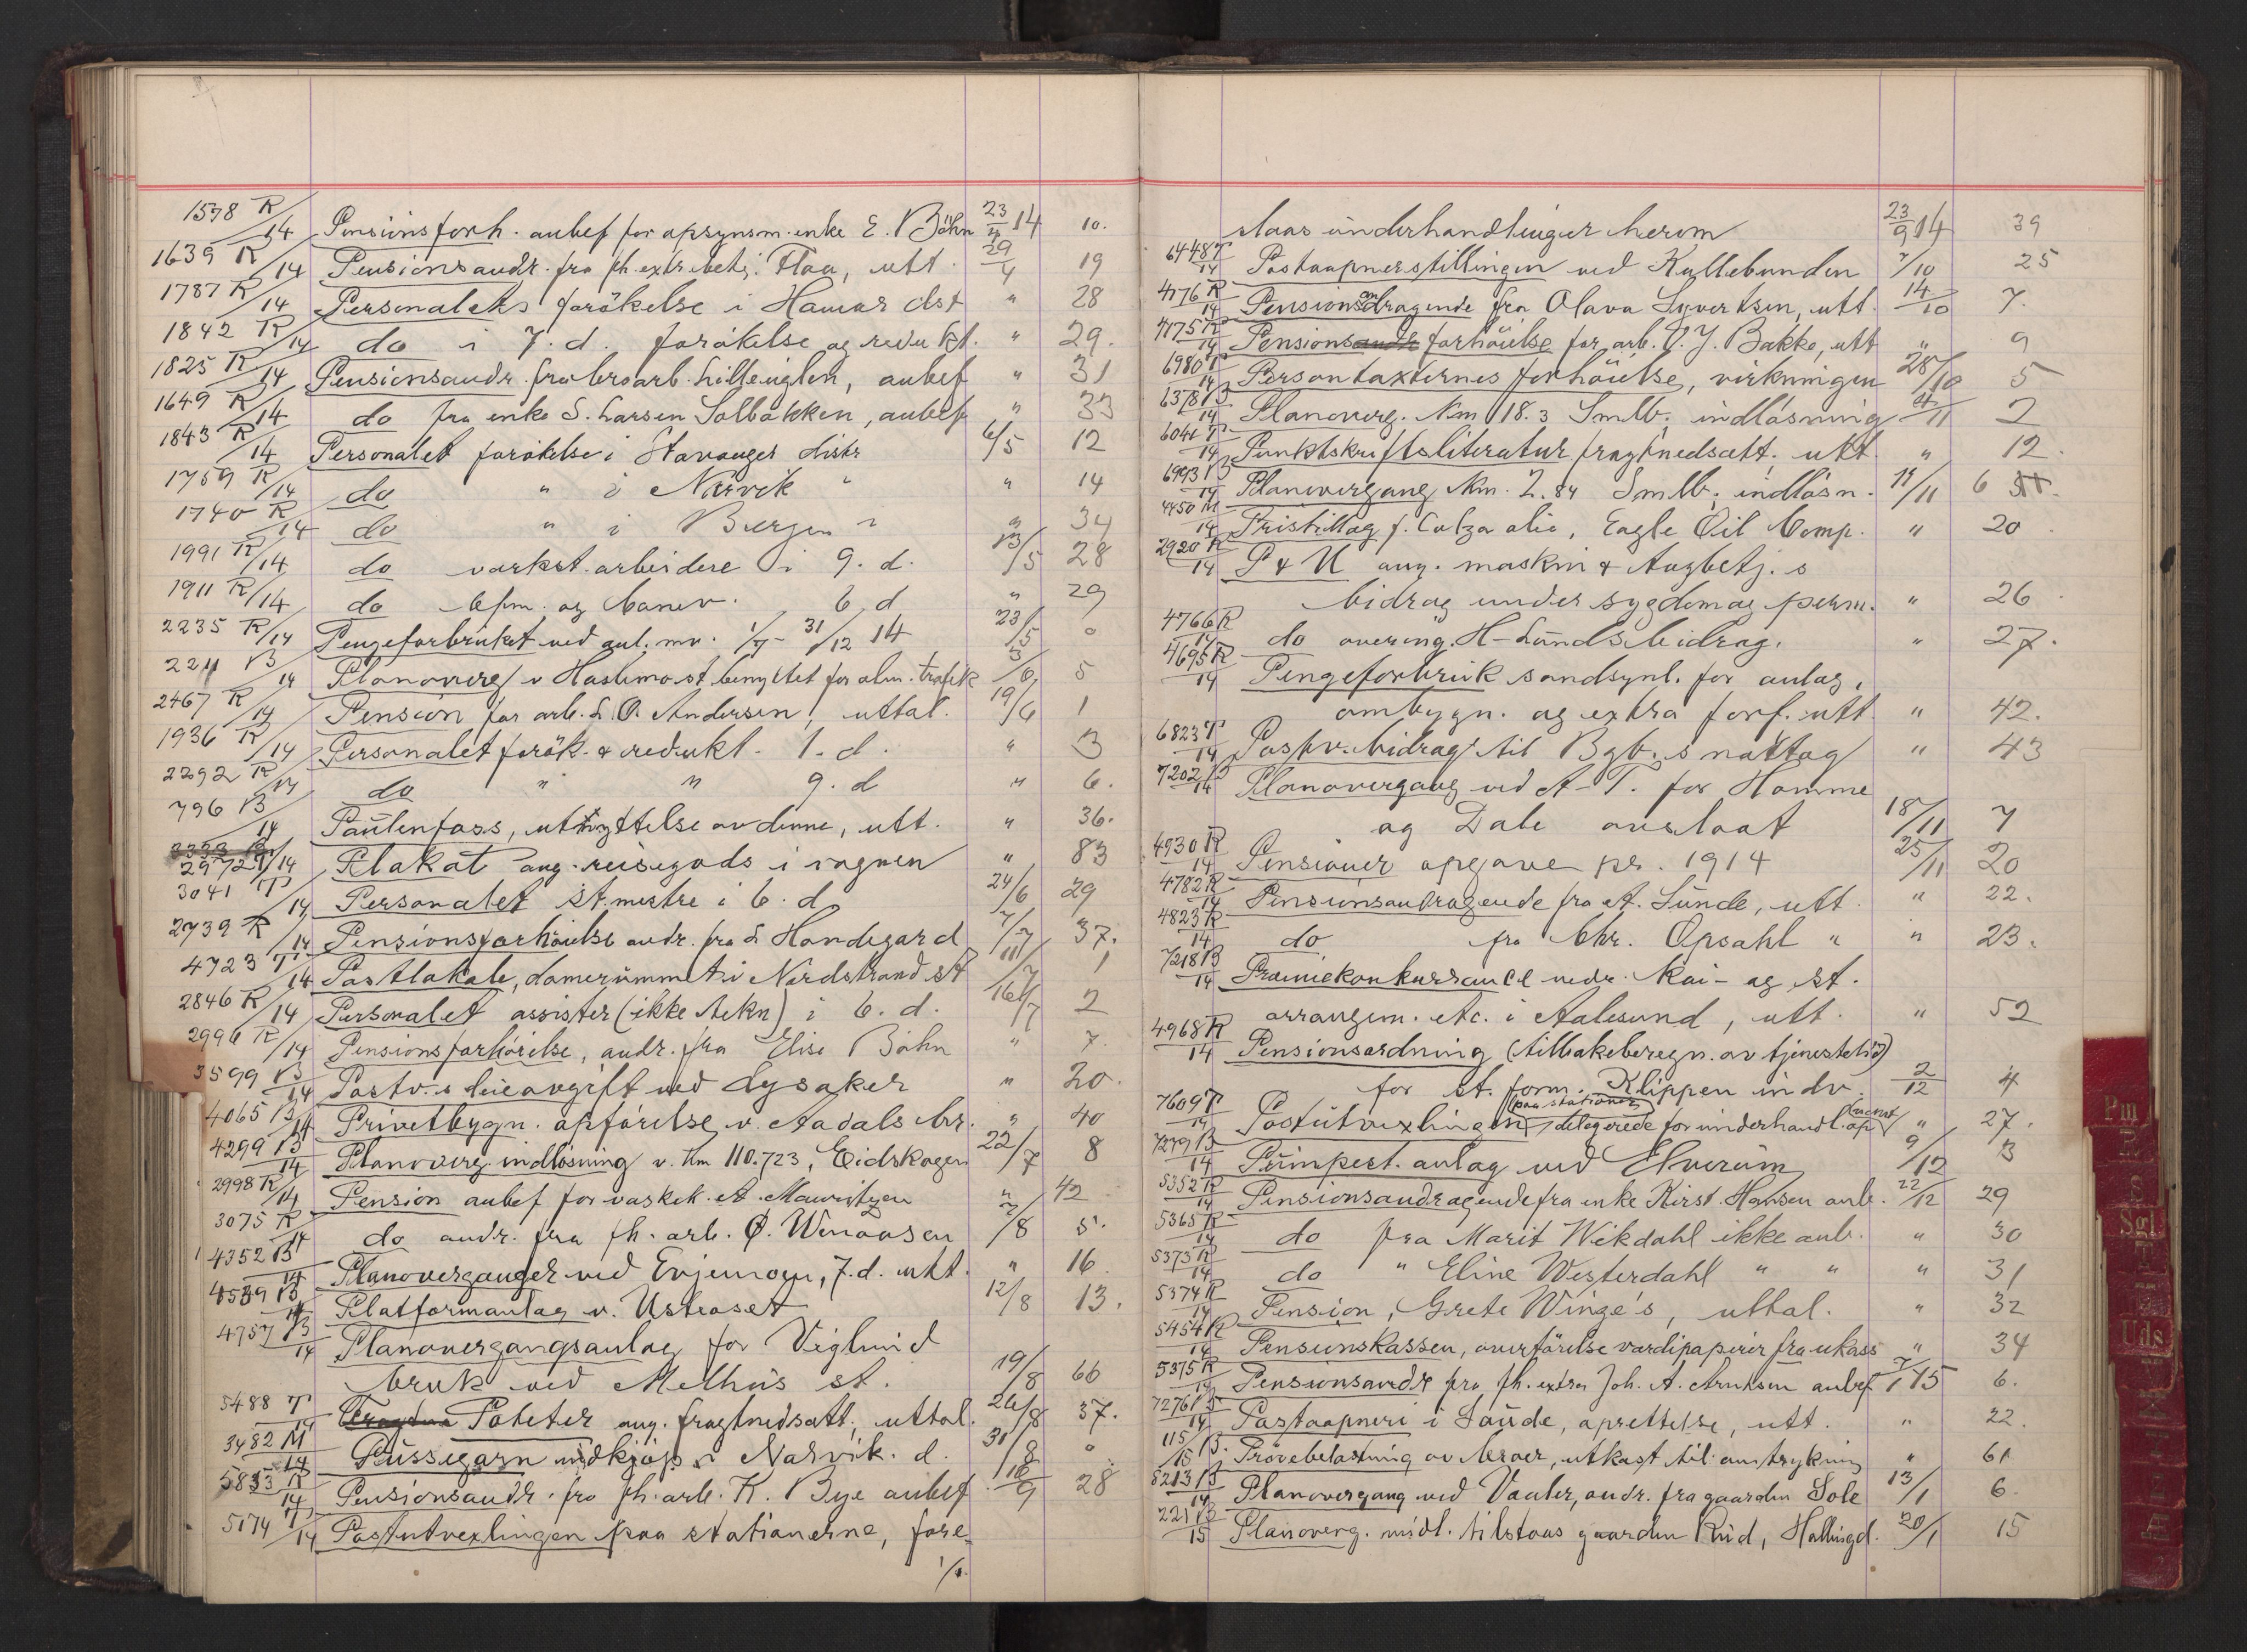 1578 R/14 Pensionsforh. anbef for opsynsm. enke E. Böhn 23/4 14 10.
1639 R/14 Pensionsandr. fra fh. extr. betj. Flaa, utt. 29/4 19
1787 R/14 Personalets forökelse i Hamar dst " 28
1842 R/14 do i 7. d. forökelse og redukt. " 29.
1825 R/14 Pensionsandr. fra broarb. Lilleeiglen, anbef " 31
1649 R/14 do fra enke S. Larsen Solbakken, anbef " 33
1843 R/14 Personalet forökelse i Stavanger distr 6/5 12
1759 R/14 do " i Narvik " " 14
1740 R/14 do " i Bergen " " 34
1991 R/14 do verkst. arbeidere i 9. d. 13/5 28
1911 R/14 do bfm. og banev. 6 d " 29
2235 R/14 Pengeforbruket ved anl. mv. 1/7 - 31/12 14 23/5 0
2211 B/14 Planoverg v Haslemo st. benyttet for alm. trafik 3/6 5
2467 R/14 Pension for arb. L. O. Andersen, uttal. 19/6 1
1936 R/14 Personalet forök. & redukt. 1. d. " 3
2292 R/14 do " " 9. d " 6.
796 B/14 Paulenfoss, utnyttelse av denne, utt. " 36.
2972 T/14 Plakat ang. reisegods i vognen " 83
3041 T/14 Personalet st. mestre i 6. d. 24/6 29
2739 R/14 Pensionsforhöielse andr. fra L Handegard 7/7 37.
4723 T/14 Postlokale, damerummet i Nordstrand st 11/7 1
2846 R/14 Personalet assister (ikke tekn) i 6. d. 16/7 2
2996 R/14 Pensionsforhöielse, andr. fra Elise Böhn " 7.
3599 B/14 Postv.s leieavgift ved Lysaker " 20.
4065 B/14 Privetbygn. opförelse v. Aadals br. " 40
4299 B/14 Planoverg. indlösning v. km 110.723, Eidskogen 22/7 8
2998 R/14 Pension anbef for vaskek. A. Mauritzen " 42
3075 R/14 do andr. fra fh. arb. O. Winaasen 7/8 5.
4352 B/14 Planoverganger ved Evjemoen, 7. d. utt. " 16
4539 B/14 Platformanlag v. Ustaoset 12/8 13.
4757 B/14 Planovergangsanlag for Viglund
bruk ved Melhus st. 19/8 66
5488 T/14 Poteter ang. fragtnedsatt. uttal. 26/8 37.
3482 M/14 Pussegarn indkjöp i Narvik. d. 31/8 0
5833 R/14 Pensionsandr. fra fh. arb. K. Bye anbef. 16/9 28
5174 T/14 Postutvexlingen paa stationerne, fore-
slaas underhandlinger herom 23/9 14 39
6448 T/14 Postaapnerstillingen ved Kullebunden 7/10 25
4176 R/14 Pensionsandragende fra Olava Syvertsen, utt. 14/10 7.
4175 R/14 Pensionsandr forhöielse for arb. O. J. Bakke, utt " 9
6980 T/14 Persontaxternes forhöielse, virkningen 28/10 5
6378 B/14 Planoverg. Km 18.3 Smlb. indlösning 4/11 2
6041 T/14 Punktskriftsliteratur fragtnedsatt. utt. " 12.
6993 B/14 Planovergang Km. 2.84 Smlb. indlösn. 11/11 6
4450 M/14 Pristillæg f. Colza olie, Eagle Oil Comp. " 20
2920 R/14 P & U ang. maskin & togbetj. s
bidrag under sygdom og perm. " 26
4766 R/14 do overing. H-Lunds bidrag. " 27.
4695 R/14 Pengeforbruk sandsynl. for anlæg,
ombygn. og extra forf. utt " 42.
6823 T/14 Postv. bidrag til Bgb.s nattog " 43
7202 B/14 Planovergang ved A-T. for Homme
og Dale avslaat 18/11 7
4930 R/14 Pensioner opgave pr. 1914 25/11 20
4782 R/14 Pensionsandragende fra A. Lunde, utt. " 22.
4823 R/14 do fra Chr. Opsahl " " 23.
7218 B/14 Præmiekonkurrance vedr. Kai- og st.
arrangem. etc. i Aalesund, utt. " 52
4968 R/14 Pensionsordning (tilbakeberegn. av tjenestetid)
for st. form. Klippen indv. 2/12 4
7609 T/14 Postutvexlingen (paa stationer), delegerede for underhandl. opnævnt " 27.
7279 B/14 Pumpest. anlag ved Elverum 9/12 3
5352 R/14 Pensionsandragende fra enke Kirst. Hansen anb. 22/12 29
5365 R/14 do fra Marit Wikdahl ikke anb. " 30
5373 R/14 do " Eline Westerdahl " " " 31
5374 R/14 Pension, Grete Winge's, uttal. " 32
5454 R/14 Pensionskassen, overförelse værdipapirer fra ukass " 34
5375 R/14 Pensionsandr fra fh. extra Joh. A. Arntsen anbef 7/1 15 6.
7276 B/14 Postaapneri i Saude, oprettelse, utt. " 22.
115/15 B. Prövebelastning av broer, utkast til omtrykning " 61
8213 B/14 Planovergang ved Vaaler, andr. fra gaarden Sole 13/1 6.
221 B/15 Planoverg. midl. tilstaas gaarden Rud, Hallingd. 20/1 15
Pm
Sgl
Uds